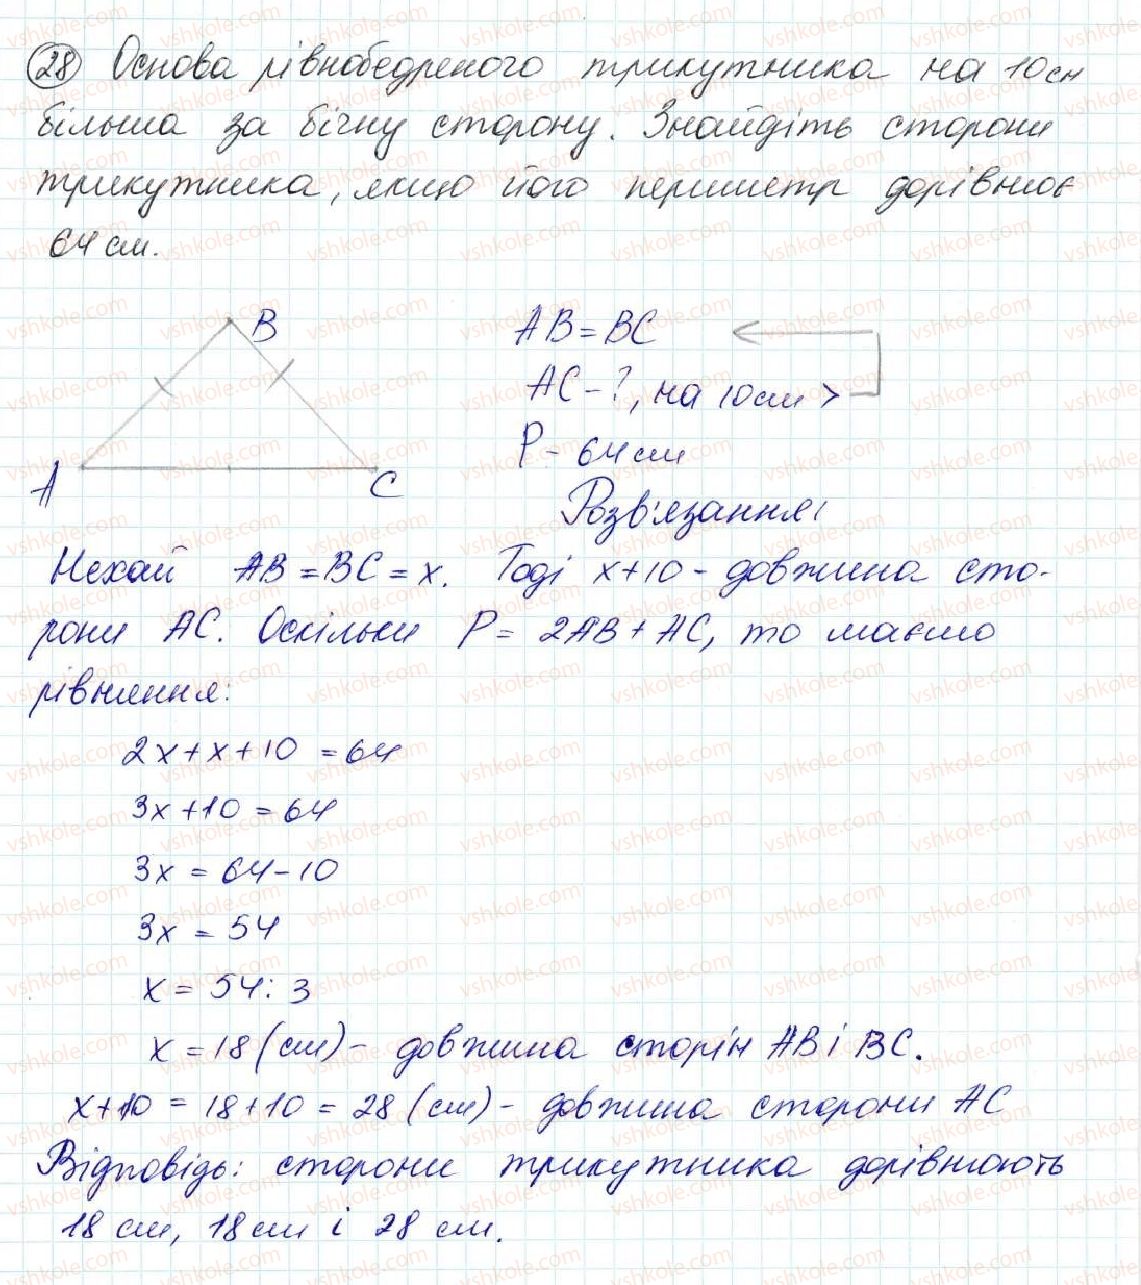 28 Основа рівнобедреного трикутника на 10 см
більша за бічну сторону. Знайдіть сторони
трикутника, якщо його периметр дорівнює
64 см.
B
AB = BC
AC - ?, на 10 см >
P - 64 см
A
C
Розв'язання:
Нехай AB = BC = x. Тоді x+10 - довжина сто-
рони AC. Оскільки P = 2AB + AC, то маємо
рівняння:
2x + x + 10 = 64
3x + 10 = 64
3x = 64 - 10
3x = 54
x = 54 : 3
x = 18 (см) - довжина сторін AB і BC.
x+10 = 18+10 = 28 (см) - довжина сторони AC
Відповідь: сторони трикутника дорівнюють
18 см, 18 см і 28 см.
vshkole.com